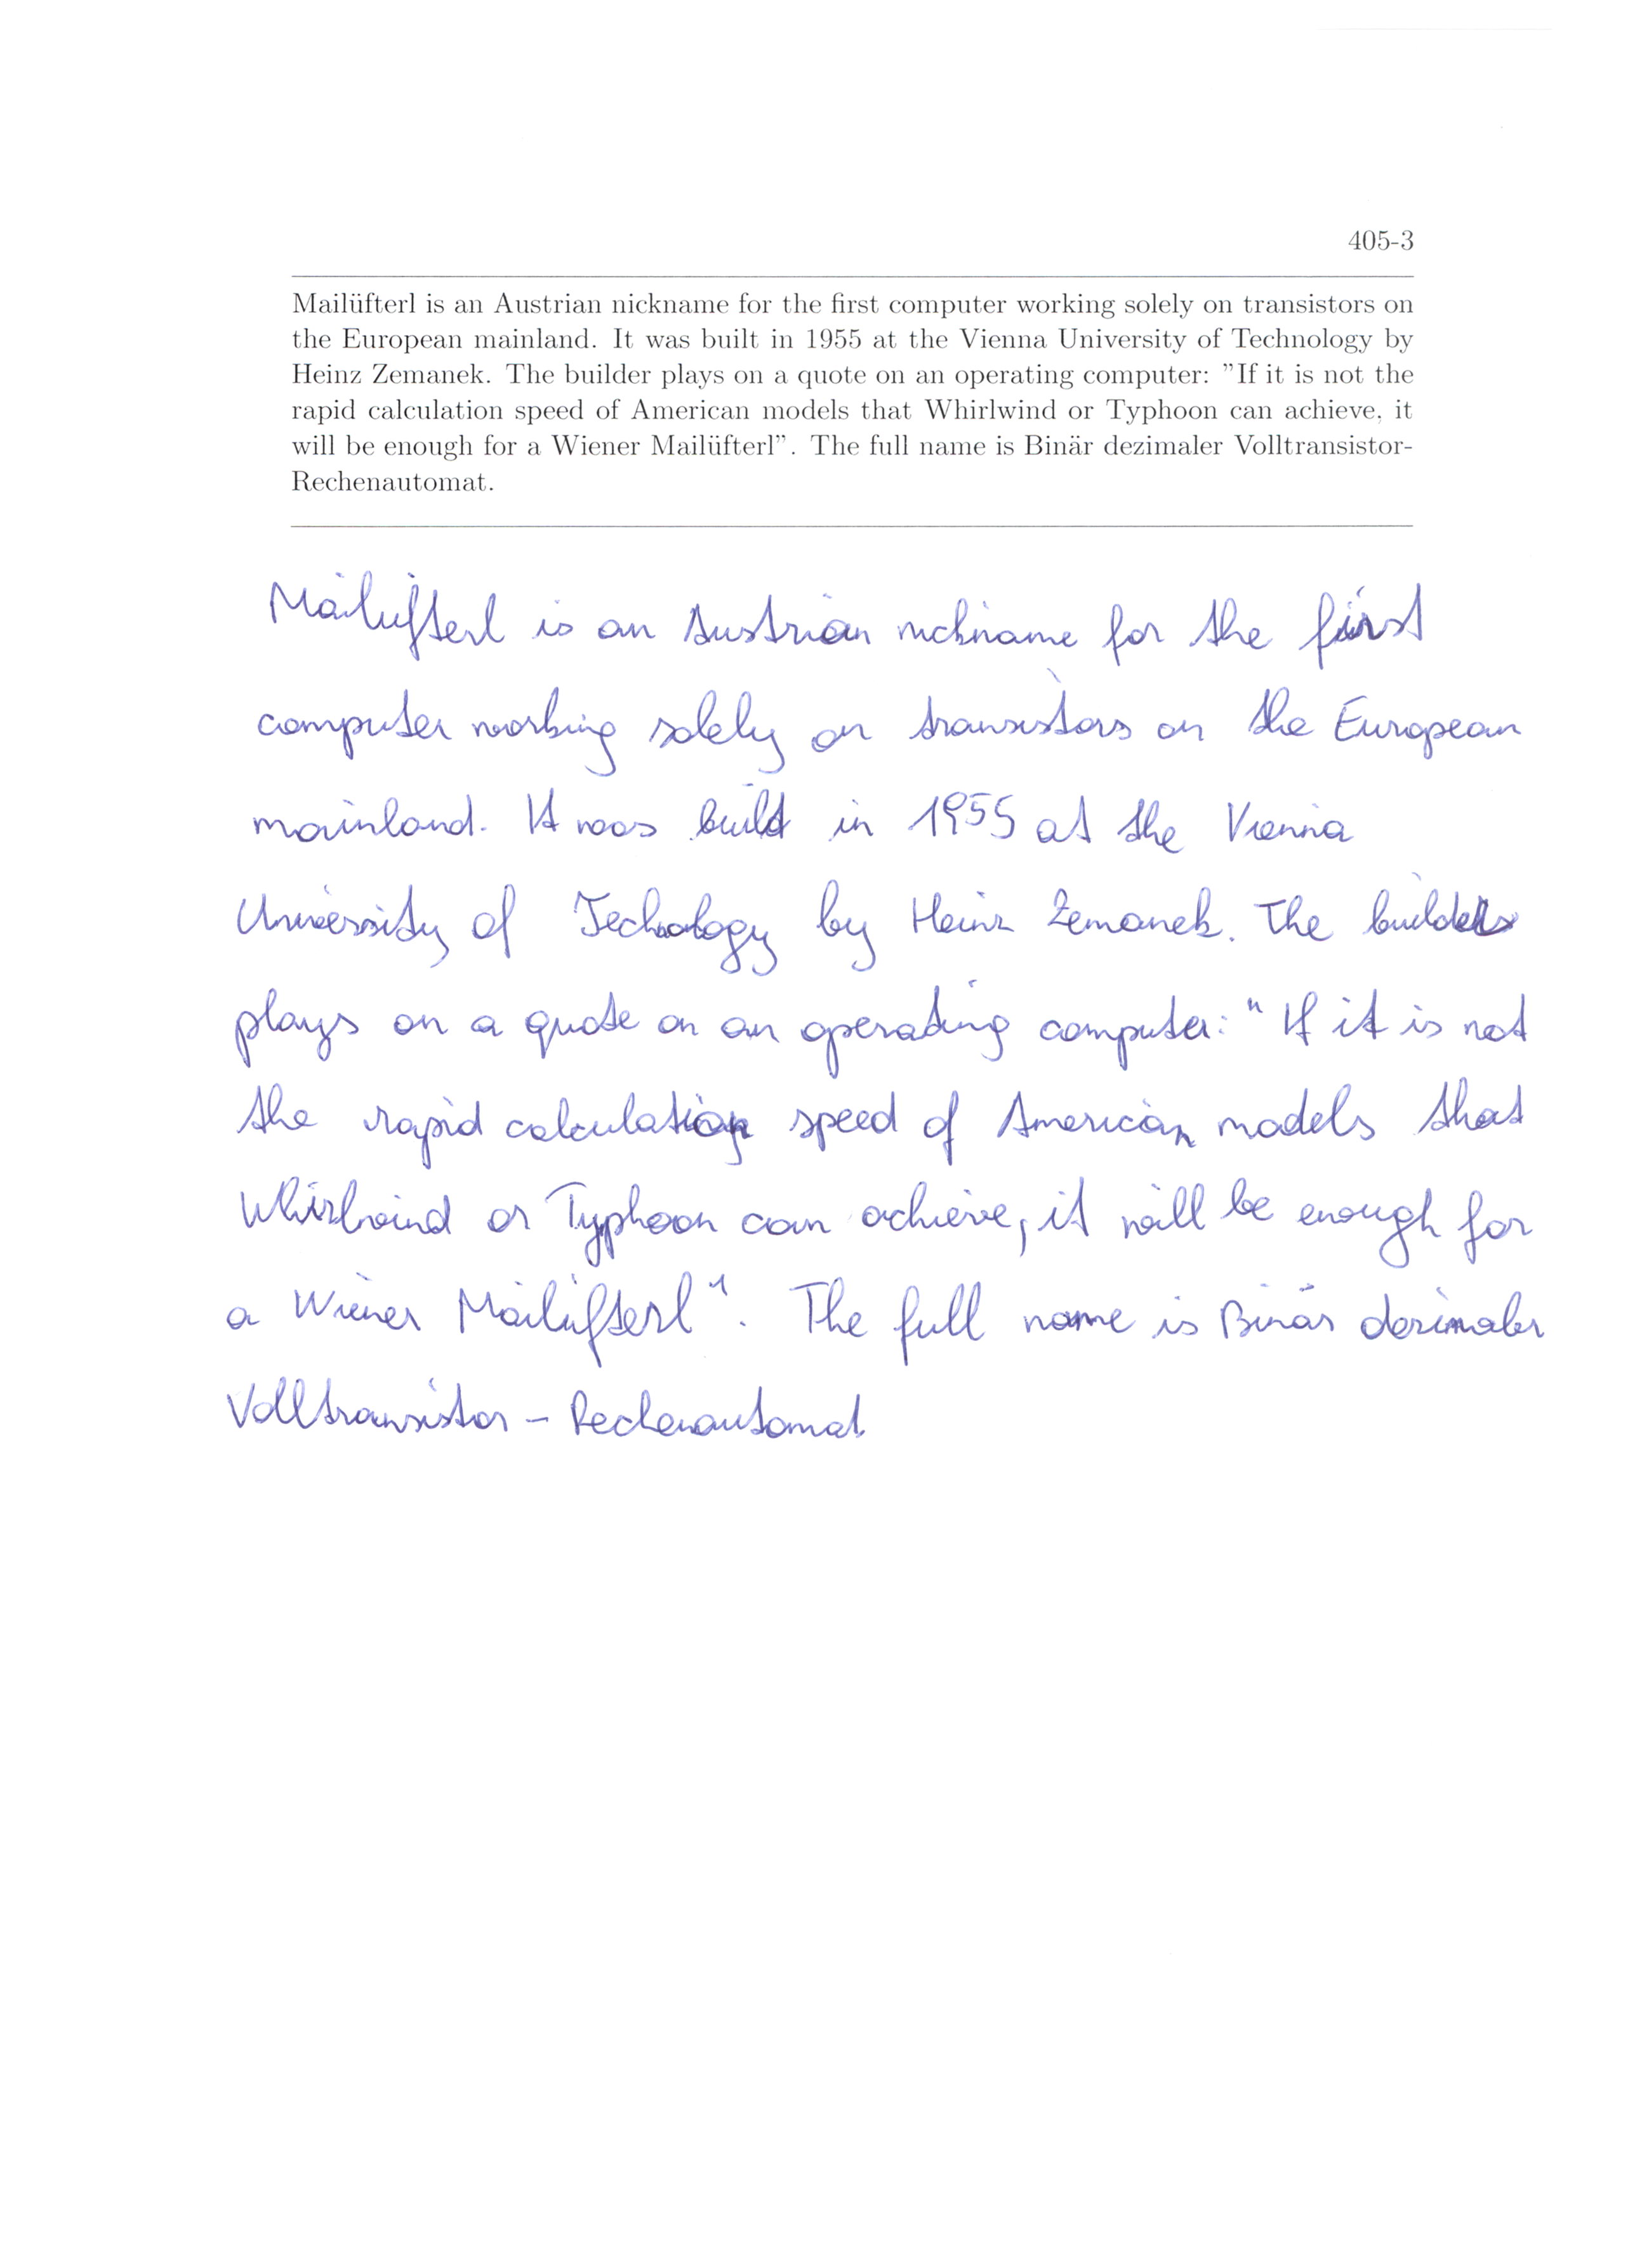 405-3
Mailüfterl is an Austrian nickname for the first computer working solely on transistors on
the European mainland. It was built in 1955 at the Vienna University of Technology by
Heinz Zemanek. The builder plays on a quote on an operating computer: "If it is not the
rapid calculation speed of American models that Whirlwind or Typhoon can achieve, it
will be enough for a Wiener Mailüfterl". The full name is Binär dezimaler Volltransistor-
Rechenautomat.
Mailüfterl is an Austrian nickname for the first
computer working solely on transistors on the European
mainland. It was build in 1955 at the Vienna
University of Technology by Heinz Zemanek. The builders
plays on a quote on an operating computer: "If it is not
the rapid calculation speed of American models that
Whirlwind or Typhoon can achieve, it will be enough for
a Wiener Mailüfterl". The full name is Binär dezimaler
Volltransistor - Rechenautomat.